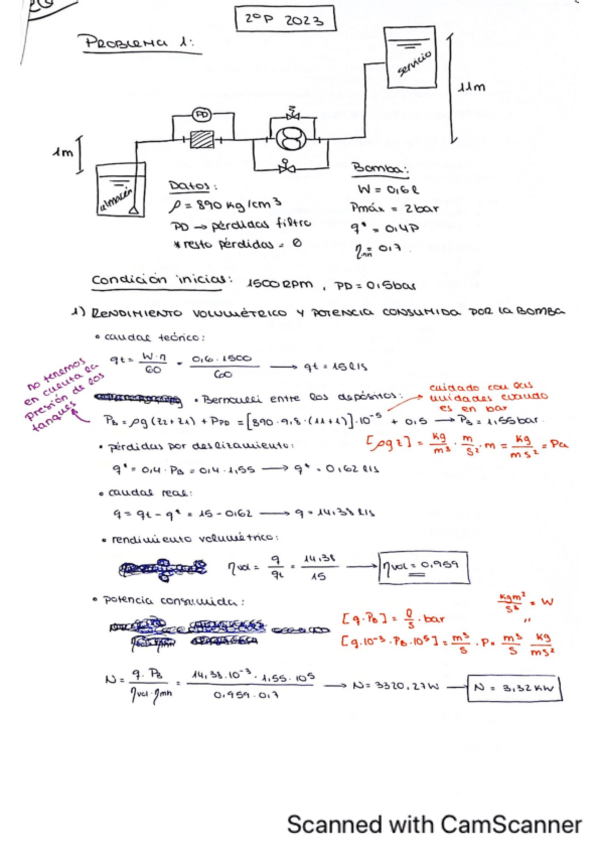 2ºP 2023
PROBLEMA 1:
servicio
11m
PD
1m
almacén
Datos:
ρ = 890 kg/cm³
PD → pérdidas filtro
* resto pérdidas = 0
Bomba:
W = 0,6 l
Pmáx = 2 bar
q* = 0,4P
ηmh = 0,7
Condición inicias: 1500 RPM, PD = 0,5 bar
1) RENDIMIENTO VOLUMÉTRICO Y POTENCIA CONSUMIDA POR LA BOMBA
• caudal teórico:
qt = W·n / 60 = 0,6·1500 / 60 → qt = 15 l/s
no tenemos en cuenta la presión de los tanques
• Bernoulli entre los depósitos:
cuidado con las unidades cuando es en bar
PB = ρg(z2+z1) + PPD = [890·9,8·(11+1)]·10⁻⁵ + 0,5 → PB = 1,55 bar.
[ρgz] = kg/m³ · m/s² · m = kg/ms² = Pa
• pérdidas por deslizamiento:
q* = 0,4·PB = 0,4·1,55 → q* = 0,62 l/s
• caudal real:
q = qt - q* = 15 - 0,62 → q = 14,38 l/s
• rendimiento volumétrico:
ηvol = q/qt = 14,38/15 → ηvol = 0,959
• potencia consumida:
kgm²/s² = W
[q·PB] = l/s · bar
"
[q·10⁻³·PB·10⁵] = m³/s · P = m³/s kg/ms²
N = q·PB / ηvol·ηmh = 14,38·10⁻³·1,55·10⁵ / 0,959·0,7 → N = 3320,27 W → N = 3,32 KW
Scanned with CamScanner